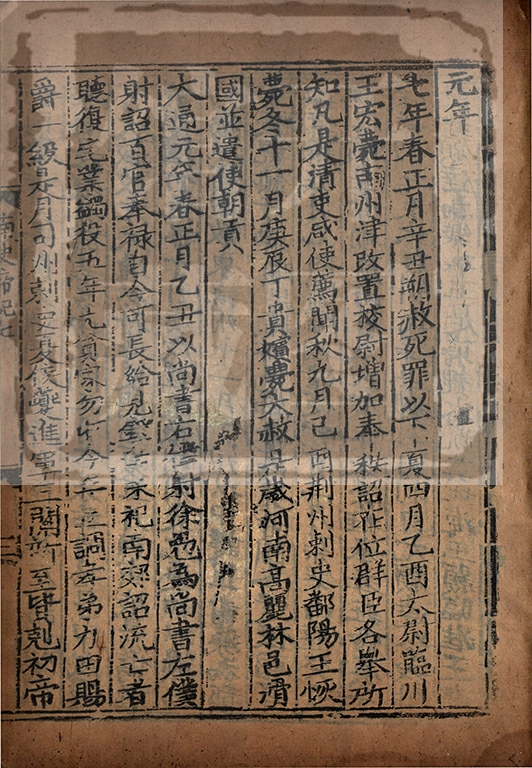 元年
七年春正月辛丑朔赦死罪以下夏四月乙酉太尉臨川
王宏薨南州津改置校尉增加奉秩詔在位群臣各舉所
知凡是清吏咸使薦聞秋九月己酉荆州刺史鄱陽王恢
薨冬十一月庚辰丁貴嬪薨大赦是歲河南高麗林邑滑
國並遣使朝貢
大通元年春正月乙丑以尚書右僕射徐勉爲尚書左僕
射詔百官奉禄自今可長給見錢辛未祀南郊詔流亡者
聽復宅業蠲役五年尤貧家勿收今年三調孝弟力田賜
爵一級是月司州刺史夏侯夔進軍三關所至皆剋初帝